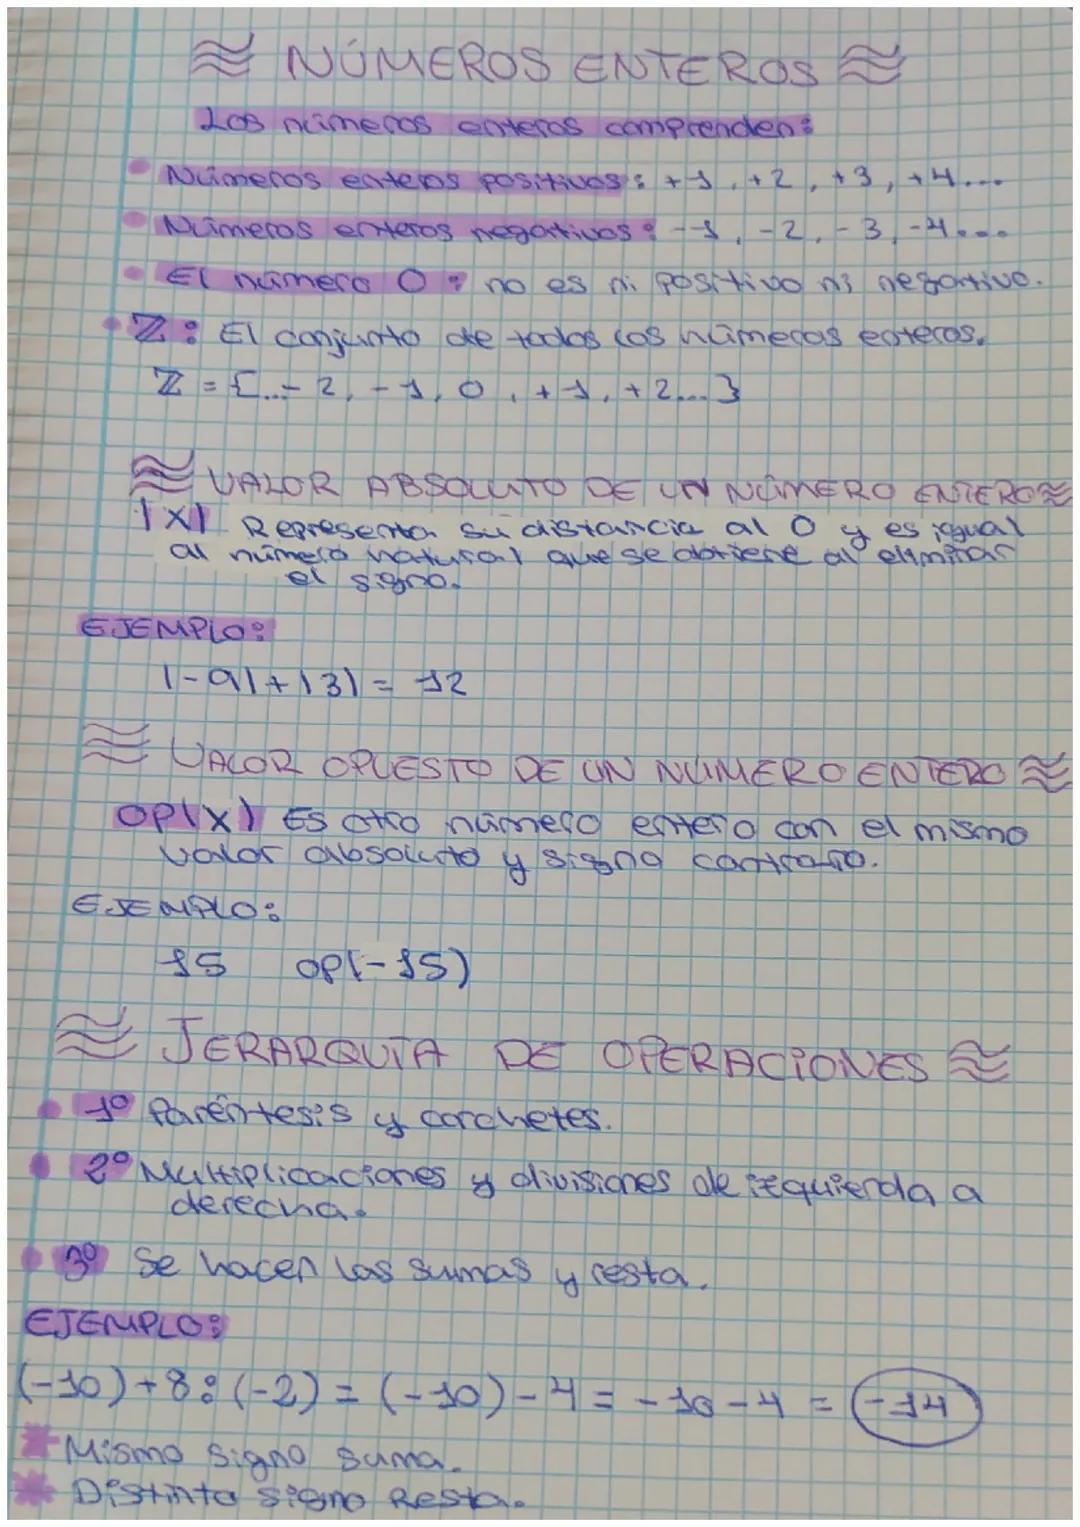 NÚMEROS ENTEROS
Los números enteros comprenden:
Números enteros positivos: +1, +2, +3, +4...
Números enteros negativos: -1, -2, -3, -4...
El número 0: no es ni positivo ni negativo.
ℤ: El conjunto de todos los números enteros.
ℤ = {...-2, -1, 0, +1, +2...}
VALOR ABSOLUTO DE UN NÚMERO ENTERO
|X| Representa su distancia al 0 y es igual
al número natural que se obtiene al eliminar
el signo.
EJEMPLO:
|-9|+|3|= 12
VALOR OPUESTO DE UN NÚMERO ENTERO
OP(X) Es otro número entero con el mismo
valor absoluto y signo contrario.
EJEMPLO:
15 op(-15)
JERARQUÍA DE OPERACIONES
1º Paréntesis y corchetes.
2º Multiplicaciones y divisiones de izquierda a
derecha.
3º Se hacen las sumas y resta.
EJEMPLO:
(-10)+8:(-2) = (-10)-4 = -10-4 = -14
Mismo signo suma.
Distinto signo Resta.